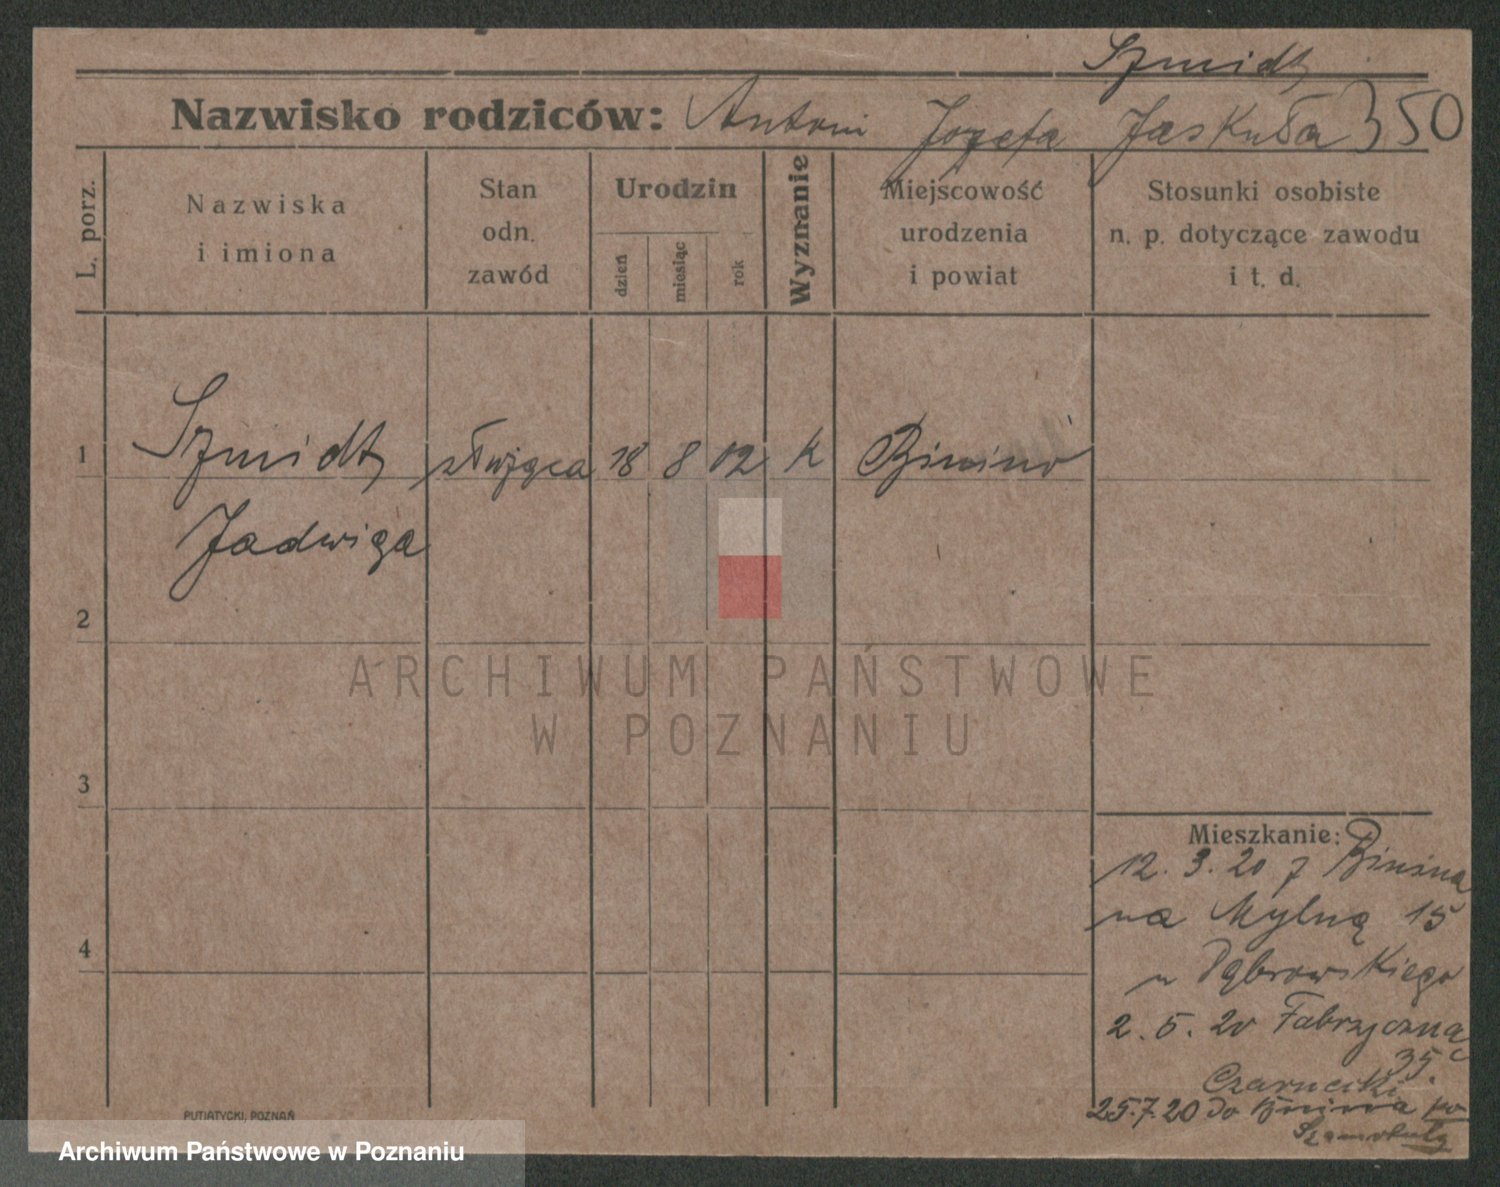 Szmidt
Nazwisko rodziców: Antoni Józefa Jaskuła 350
L. porz.
Nazwiska
i imiona
Stan
odn.
zawód
Urodzin
dzień
miesiąc
rok
Wyznanie
Miejscowość
urodzenia
i powiat
Stosunki osobiste
n. p. dotyczące zawodu
i t. d.
1 Szmidt służąca 18 8 02 k Binino
Jadwiga
2
3
4
Mieszkanie:
12. 3. 20 z Binina
na Mylną 15
u Dąbrowskiego
2. 5. 20 Fabryczną
35.
25.7.20 do Binina
PUTIATYCKI, POZNAŃ
ARCHIWUM PAŃSTWOWE
W POZNANIU
Archiwum Państwowe w Poznaniu